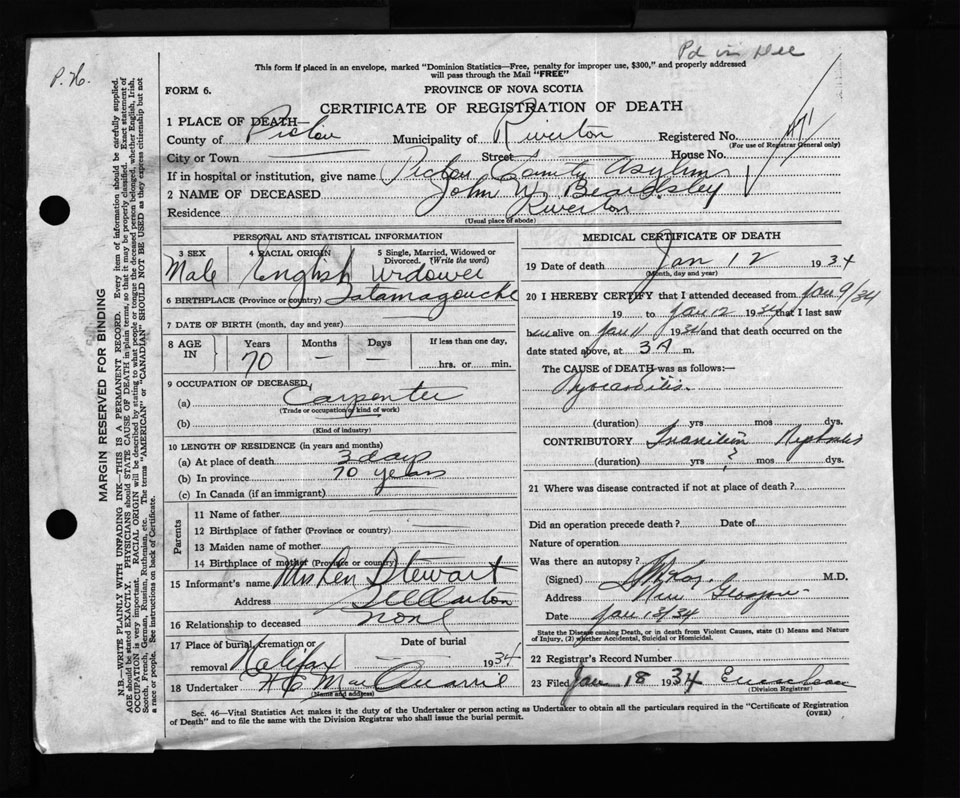 Pd in Dec
P. H.
This form if placed in an envelope, marked "Dominion Statistics—Free, penalty for improper use, $300," and properly addressed
will pass through the Mail "FREE"
FORM 6.
PROVINCE OF NOVA SCOTIA
CERTIFICATE OF REGISTRATION OF DEATH
1 PLACE OF DEATH—
County of Pictou Municipality of Riverton Registered No.
(For use of Registrar General only)
City or Town Street House No.
If in hospital or institution, give name Pictou County Asylum
2 NAME OF DECEASED John W. Beardsley
Residence Riverton
(Usual place of abode)
PERSONAL AND STATISTICAL INFORMATION
3 SEX 4 RACIAL ORIGIN 5 Single, Married, Widowed or Divorced. (Write the word)
Male English widower
6 BIRTHPLACE (Province or country) Tatamagouche
7 DATE OF BIRTH (month, day and year)
8 AGE IN Years Months Days If less than one day,
70 — — hrs. or min.
9 OCCUPATION OF DECEASED,
(a) Carpenter
(Trade or occupation or kind of work)
(b)
(Kind of industry)
10 LENGTH OF RESIDENCE (in years and months)
(a) At place of death 3 days
(b) In province 70 years
(c) In Canada (if an immigrant)
Parents
11 Name of father
12 Birthplace of father (Province or country)
13 Maiden name of mother
14 Birthplace of mother (Province or country)
15 Informant's name Mrs Ken Stewart
Address Stellarton
16 Relationship to deceased none
17 Place of burial, cremation or removal Halifax Date of burial 1934
18 Undertaker MacQuarrie
(Name and address)
MEDICAL CERTIFICATE OF DEATH
19 Date of death Jan 12 1934
(Month, day and year)
20 I HEREBY CERTIFY that I attended deceased from Jan 9/34
19 to Jan 12 1934 that I last saw
him alive on Jan 11 1934 and that death occurred on
date stated above, at 3 A m.
The CAUSE of DEATH was as follows:—
Myocarditis.
(duration) yrs mos dys.
CONTRIBUTORY Nephritis
(duration) yrs ? mos dys.
21 Where was disease contracted if not at place of death?
Did an operation precede death? Date of
Nature of operation
Was there an autopsy?
(Signed) M.D.
Address New Glasgow
Date Jan 18/34
State the Disease causing Death, or in death from Violent Causes, state (1) Means and Nature
of Injury, (2) whether Accidental, Suicidal or Homicidal.
22 Registrar's Record Number
23 Filed Jan 18 1934
(Division Registrar)
Sec. 46—Vital Statistics Act makes it the duty of the Undertaker or person acting as Undertaker to obtain all the particulars required in the "Certificate of Registration
of Death" and to file the same with the Division Registrar who shall issue the burial permit.
(OVER)
MARGIN RESERVED FOR BINDING
N.B.—WRITE PLAINLY WITH UNFADING INK—THIS IS A PERMANENT RECORD. Every item of information should be carefully supplied.
AGE should be stated EXACTLY. PHYSICIANS should STATE CAUSE OF DEATH in plain terms, so that it may be properly classified. Exact statement of
OCCUPATION is very important. RACIAL ORIGIN will be described by stating to what people or tongue the deceased person belonged, whether English, Irish,
Scotch, French, German, Russian, Ruthenian, etc. The terms "AMERICAN" or "CANADIAN" SHOULD NOT BE USED as they express citizenship but not
a race or people. See instructions on back of Certificate.